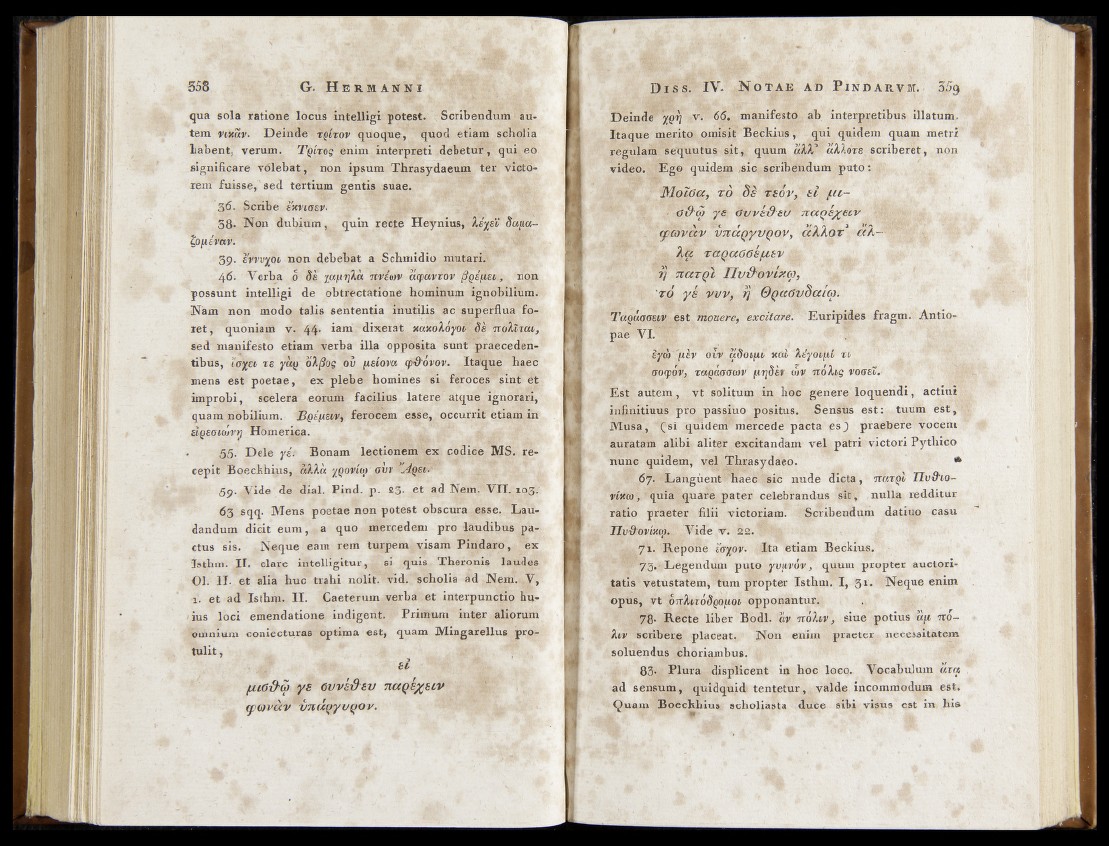 358 G. HERMANNI
qua sola ratione locus intelligi potest. Scribendum au-
tem νικᾶν. Deinde τρίτον quoque, quod etiam scholia
habent, verum. Τρίτος enim interpreti debetur, qui eo
significare volebat, non ipsum Thrasydaeum ter victo-
rem fuisse, sed tertium gentis suae.
36. Scribe ἔκνισεν.
38. Non dubium, quin recte Heynius, λέχεϊ δαμα-
ζομέναν.
39. ἔννυχοι non debebat a Schmidio mutari.
46. Verba ὁ δὲ χαμηλὰ πνέων ἄφαντον βρέμει, non
possunt intelligi de obtrectatione hominum ignobilium.
Nam non modo talis sententia inutilis ac superflua fo-
ret, quoniam v. 44. iam dixerat κακολόγοι δὲ πολῖται,
sed manifesto etiam verba illa opposita sunt praeceden-
tibus, ἴσχει τε γὰρ ὄλβος οὐ μείονα φθόνον. Itaque haec
mens est poetae, ex plebe homines si feroces sint et
improbi, scelera eorum facilius latere atque ignorari,
quam nobilium. Βρέμειν, ferocem esse, occurrit etiam in
εἰρεσιώνῃ Homerica.
55. Dele γέ. Bonam lectionem ex codice MS. re-
cepit Boeckhius, ἀλλὰ χρονίῳ σὺν Ἄρει.
59. Vide de dial. Pind. p. 23. et ad Nem. VII. 103.
63 sqq. Mens poetae non potest obscura esse. Lau-
dandum dicit eum, a quo mercedem pro laudibus pa-
ctus sis. Neque eam rem turpem visam Pindaro, ex
Isthm. II. clare intelligitur, si quis Theronis laudes
Ol. II. et alia huc trahi nolit. vid. scholia ad Nem. V,
1. et ad Isthm. II. Caeterum verba et interpunctio hu-
ius loci emendatione indigent. Primum inter aliorum
omnium coniecturas optima est, quam Mingarellus pro-
tulit,
εἰ
μισθῷ γε συνέθευ παρέχειν
φωνὰν ὑπάργυρον.
DISS. IV. NOTAE AD PINDARVM. 359
Deinde χρὴ v. 66. manifesto ab interpretibus illatum.
Itaque merito omisit Beckius, qui quidem quam metri
regulam sequutus sit, quum ἄλλ' ἄλλοτε scriberet, non
video. Ego quidem sic scribendum puto:
Μοῖσα, τὸ δὲ τεόν, εἰ μι-
σθῷ γε συνέθευ παρέχειν
φωνὰν ὑπάργυρον, ἄλλοτ' ἄλ-
λᾳ ταρασσέμεν
ἢ πατρὶ Πυθονίκῳ,
τό γέ νυν, ἢ Θρασυδαίῳ.
Ταράσσειν est mouere, excitare. Euripides fragm. Antio-
pae VI.
ἐγὼ μὲν οὖν ᾄδοιμι καὶ λέγοιμί τι
σοφόν, ταράσσων μηδὲν ὧν πόλις νοσεῖ.
Est autem, vt solitum in hoc genere loquendi, actiui
infinitiuus pro passiuo positus. Sensus est: tuum est,
Musa, (si quidem mercede pacta es) praebere vocem
auratam alibi aliter excitandam vel patri victori Pythico
nunc quidem, vel Thrasydaeo.
67. Languent haec sic nude dicta, πατρὶ Πυθιο-
νίκῳ, quia quare pater celebrandus sit, nulla redditur
ratio praeter filii victoriam. Scribendum datiuo casu
Πυθονίκῳ. Vide v. 22.
71. Repone ἔσχον. Ita etiam Beckius.
73. Legendum puto γυμνόν, quum propter auctori-
tatis vetustatem, tum propter Isthm. I, 31. Neque enim
opus, vt ὁπλιτόδρομοι opponantur.
78. Recte liber Bodl. ἂν πόλιν, siue potius ἂμ πό-
λιν scribere placeat. Non enim praeter necessitatem
soluendus choriambus.
83. Plura displicent in hoc loco. Vocabulum ἄτᾳ
ad sensum, quidquid tentetur, valde incommodum est.
Quam Boeckhius scholiasta duce sibi visus est in his